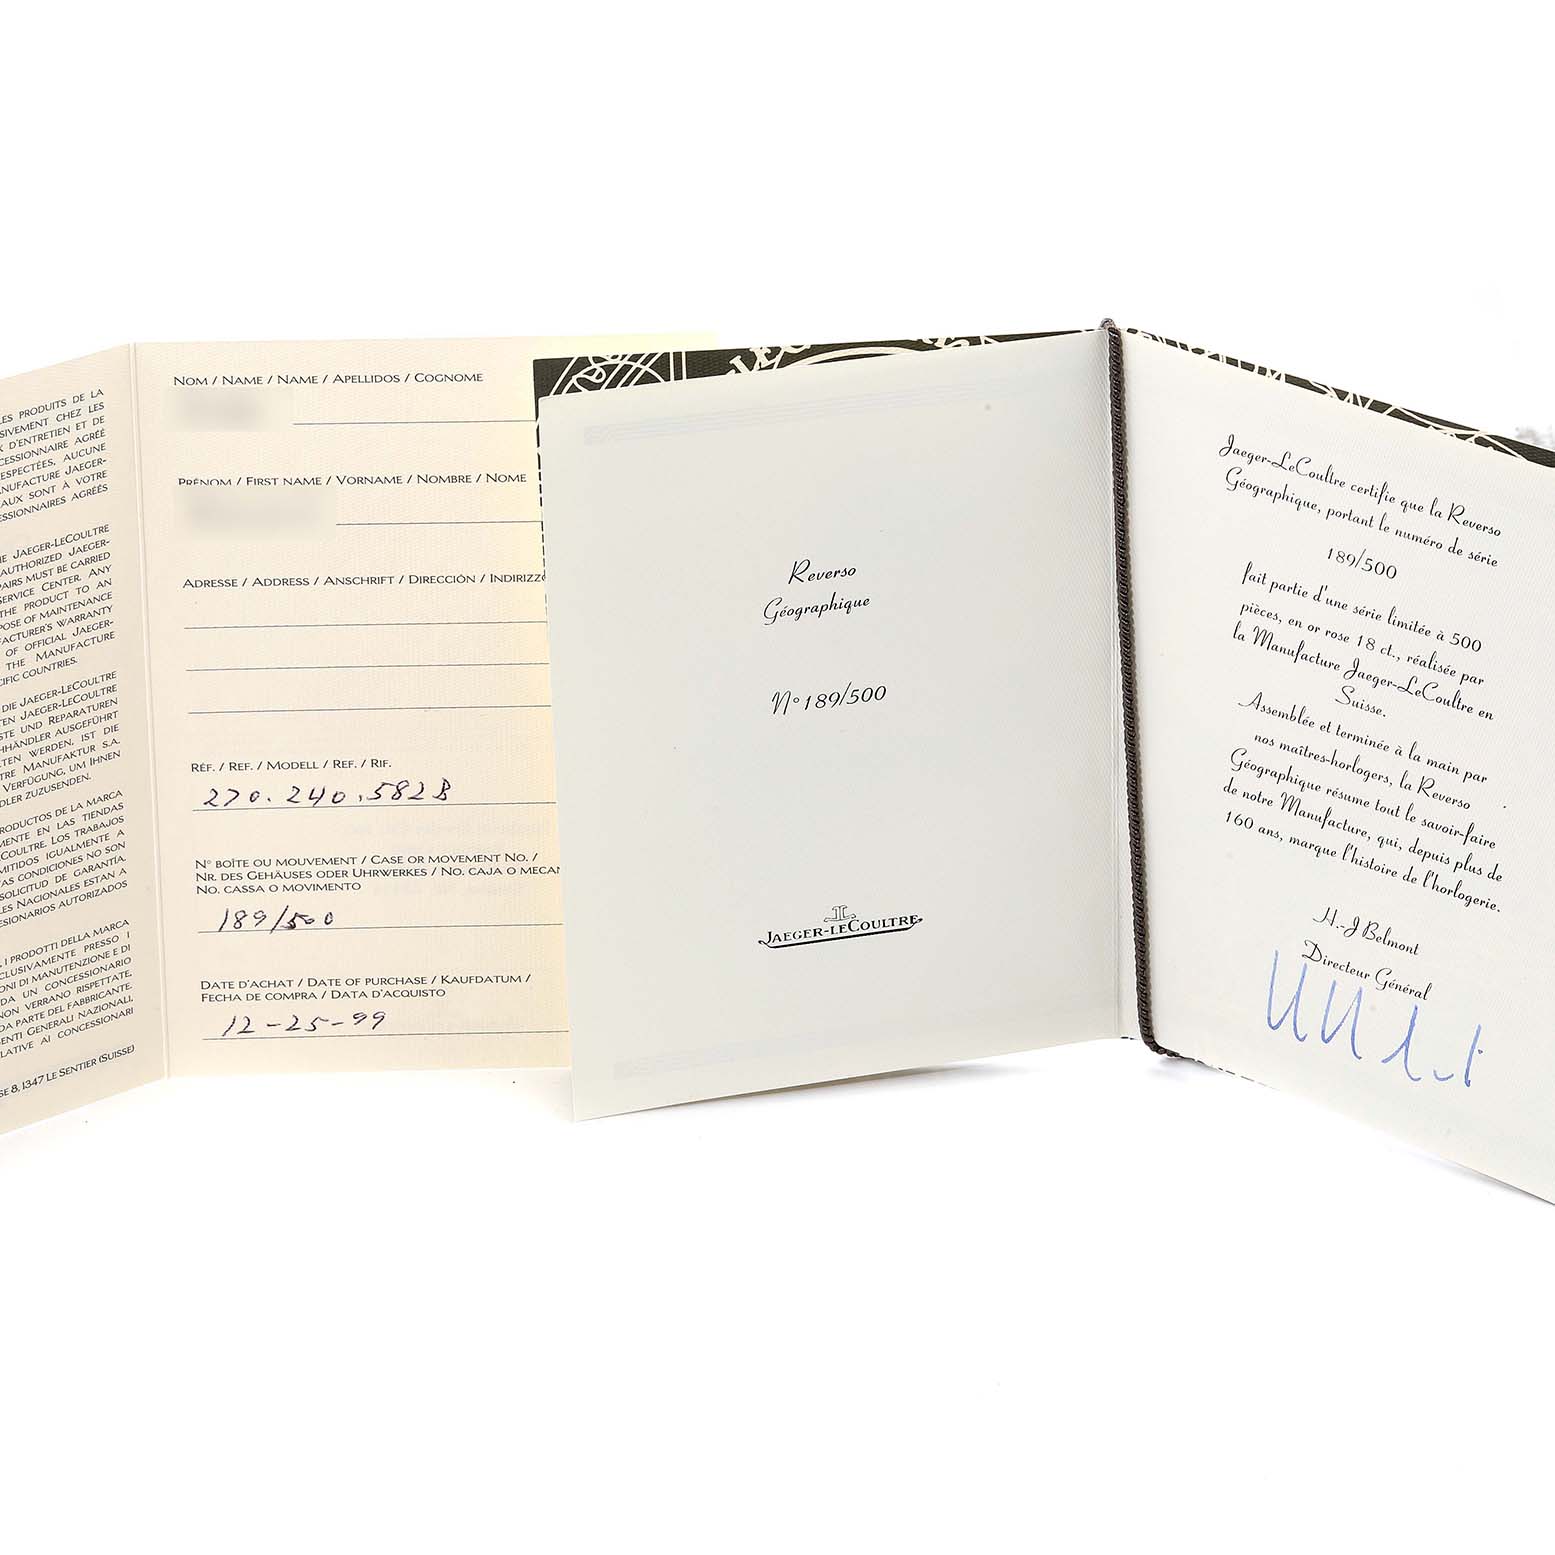 LES PRODUITS DE LA
SIVEMENT CHEZ LES
D'ENTRETIEN ET DE
CESSIONNAIRE AGRÉÉ
ESPECTÉES, AUCUNE
NUFACTURE JAEGER-
AUX SONT À VOTRE
ESSIONNAIRES AGRÉÉS
JAEGER-LECOULTRE
AUTHORIZED JAEGER-
PAIRS MUST BE CARRIED
SERVICE CENTER. ANY
THE PRODUCT TO AN
POSE OF MAINTENANCE
FACTURER'S WARRANTY
OF OFFICIAL JAEGER-
THE MANUFACTURE
CIFIC COUNTRIES.
DIE JAEGER-LECOULTRE
TEN JAEGER-LECOULTRE
STE UND REPARATUREN
HHÄNDLER AUSGEFÜHRT
LTEN WERDEN, IST DIE
TRE MANUFAKTUR S.A.
VERFÜGUNG, UM IHNEN
DLER ZUZUSENDEN.
RODUCTOS DE LA MARCA
MENTE EN LAS TIENDAS
COULTRE. LOS TRABAJOS
MITIDOS IGUALMENTE A
TAS CONDICIONES NO SON
SOLICITUD DE GARANTIA.
LES NACIONALES ESTAN A
ESIONARIOS AUTORIZADOS
, I PRODOTTI DELLA MARCA
CLUSIVAMENTE PRESSO I
ONI DI MANUTENZIONE E DI
DA UN CONCESSIONARIO
NON VERRANO RISPETTATE,
DA PARTE DEL FABBRICANTE.
ENTI GENERALI NAZIONALI,
LATIVE AI CONCESSIONARI
SE 8, 1347 LE SENTIER (SUISSE)
NOM / NAME / NAME / APELLIDOS / COGNOME
PRÉNOM / FIRST NAME / VORNAME / NOMBRE / NOME
ADRESSE / ADDRESS / ANSCHRIFT / DIRECCIÓN / INDIRIZZO
RÉF. / REF. / MODELL / REF. / RIF.
270.240.582B
N° BOÎTE OU MOUVEMENT / CASE OR MOVEMENT NO. /
NR. DES GEHÄUSES ODER UHRWERKES / NO. CAJA O MECAN
NO. CASSA O MOVIMENTO
189/500
DATE D'ACHAT / DATE OF PURCHASE / KAUFDATUM /
FECHA DE COMPRA / DATA D'ACQUISTO
12-25-99
Reverso
Géographique
N° 189/500
JAEGER-LECOULTRE
Jaeger-LeCoultre certifie que la Reverso
Géographique, portant le numéro de série
189/500
fait partie d'une série limitée à 500
pièces, en or rose 18 ct., réalisée par
la Manufacture Jaeger-LeCoultre en
Suisse.
Assemblée et terminée à la main par
nos maîtres-horlogers, la Reverso
Géographique résume tout le savoir-faire
de notre Manufacture, qui, depuis plus de
160 ans, marque l'histoire de l'horlogerie.
H.-J Belmont
Directeur Général